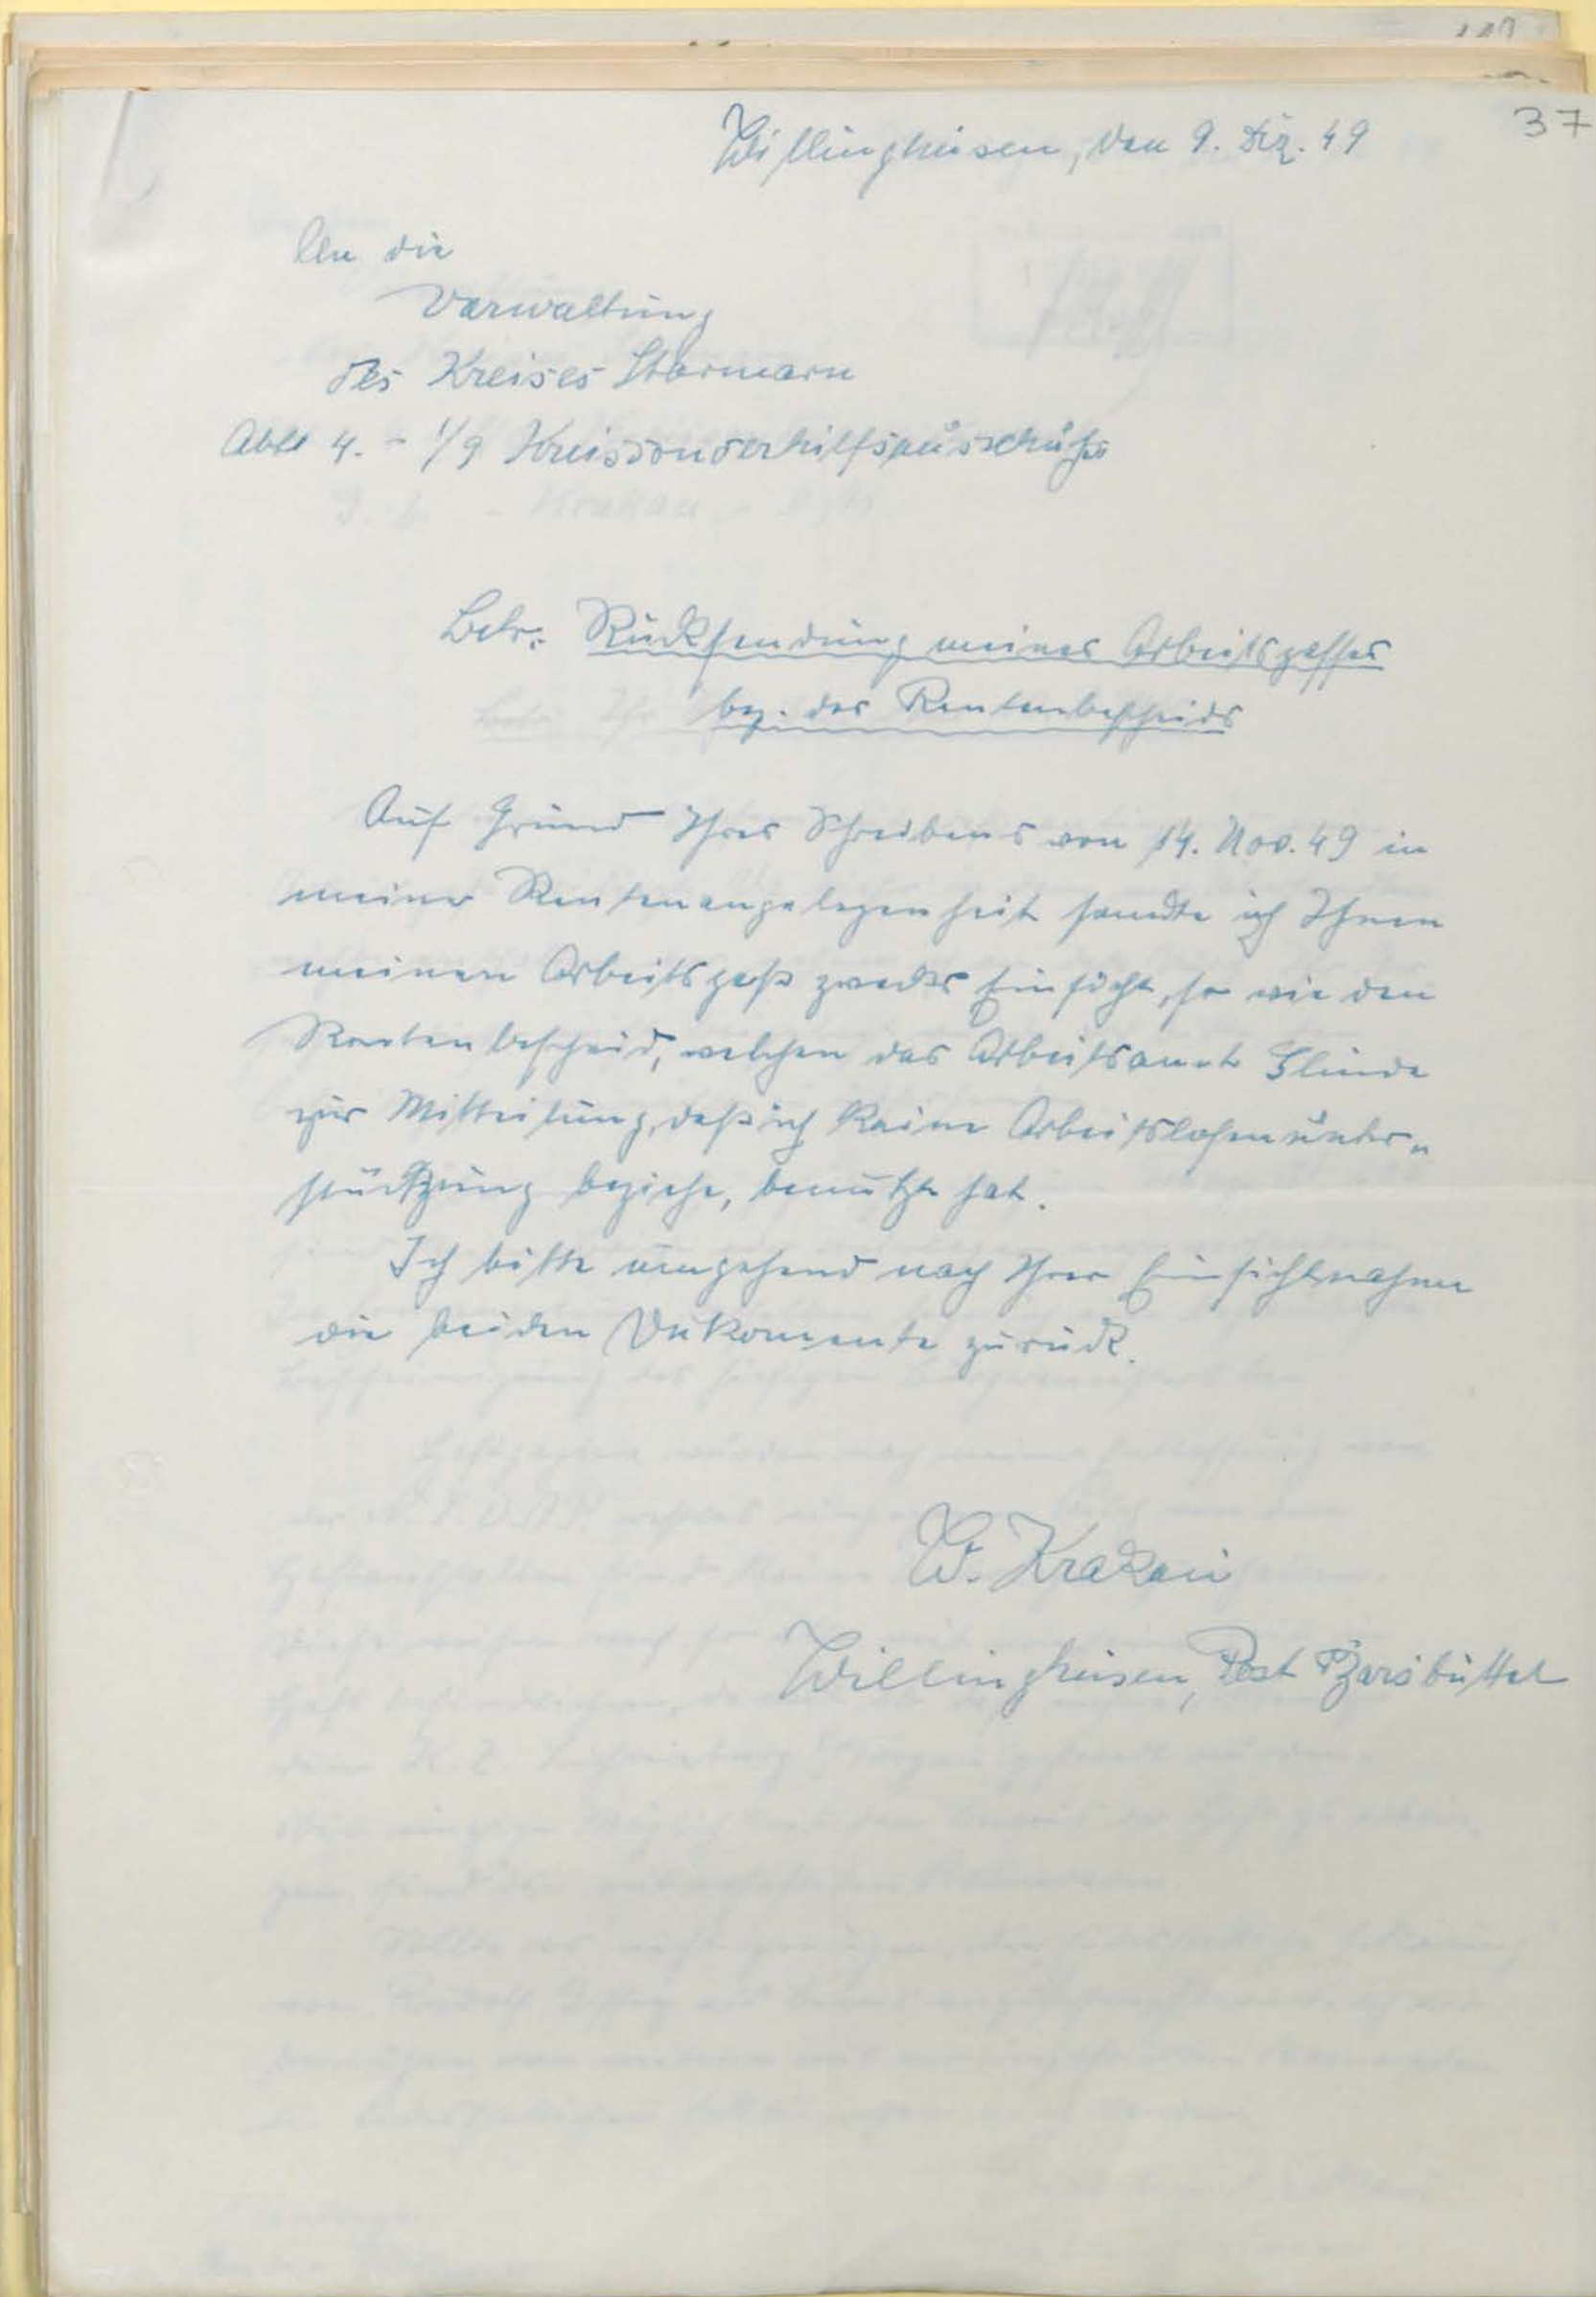 37
Willinghusen, den 9. Dez. 49
An die
Verwaltung
des Kreises Stormarn
Abtl 4. - 1/9 Kreissonderhilfsausschuß
Betr: Rücksendung meines Arbeitspasses
bez. des Rentenbescheids
Auf Grund Ihres Schreibens von 14. Nov. 49 in
meiner Rentenangelegenheit sandte ich Ihnen
meinen Arbeitspaß zwecks Einsicht, so wie den
Rentenbescheid, welchen das Arbeitsamt Glinde
zur Mitteilung, daß ich keine Arbeitslosenunter-
stützung beziehe, benutzte hat.
Ich bitte umgehend nach Ihrer Einsichtnahme
die beiden Dokumente zurück.
W. Krakau
Willinghusen, Post Barsbüttel